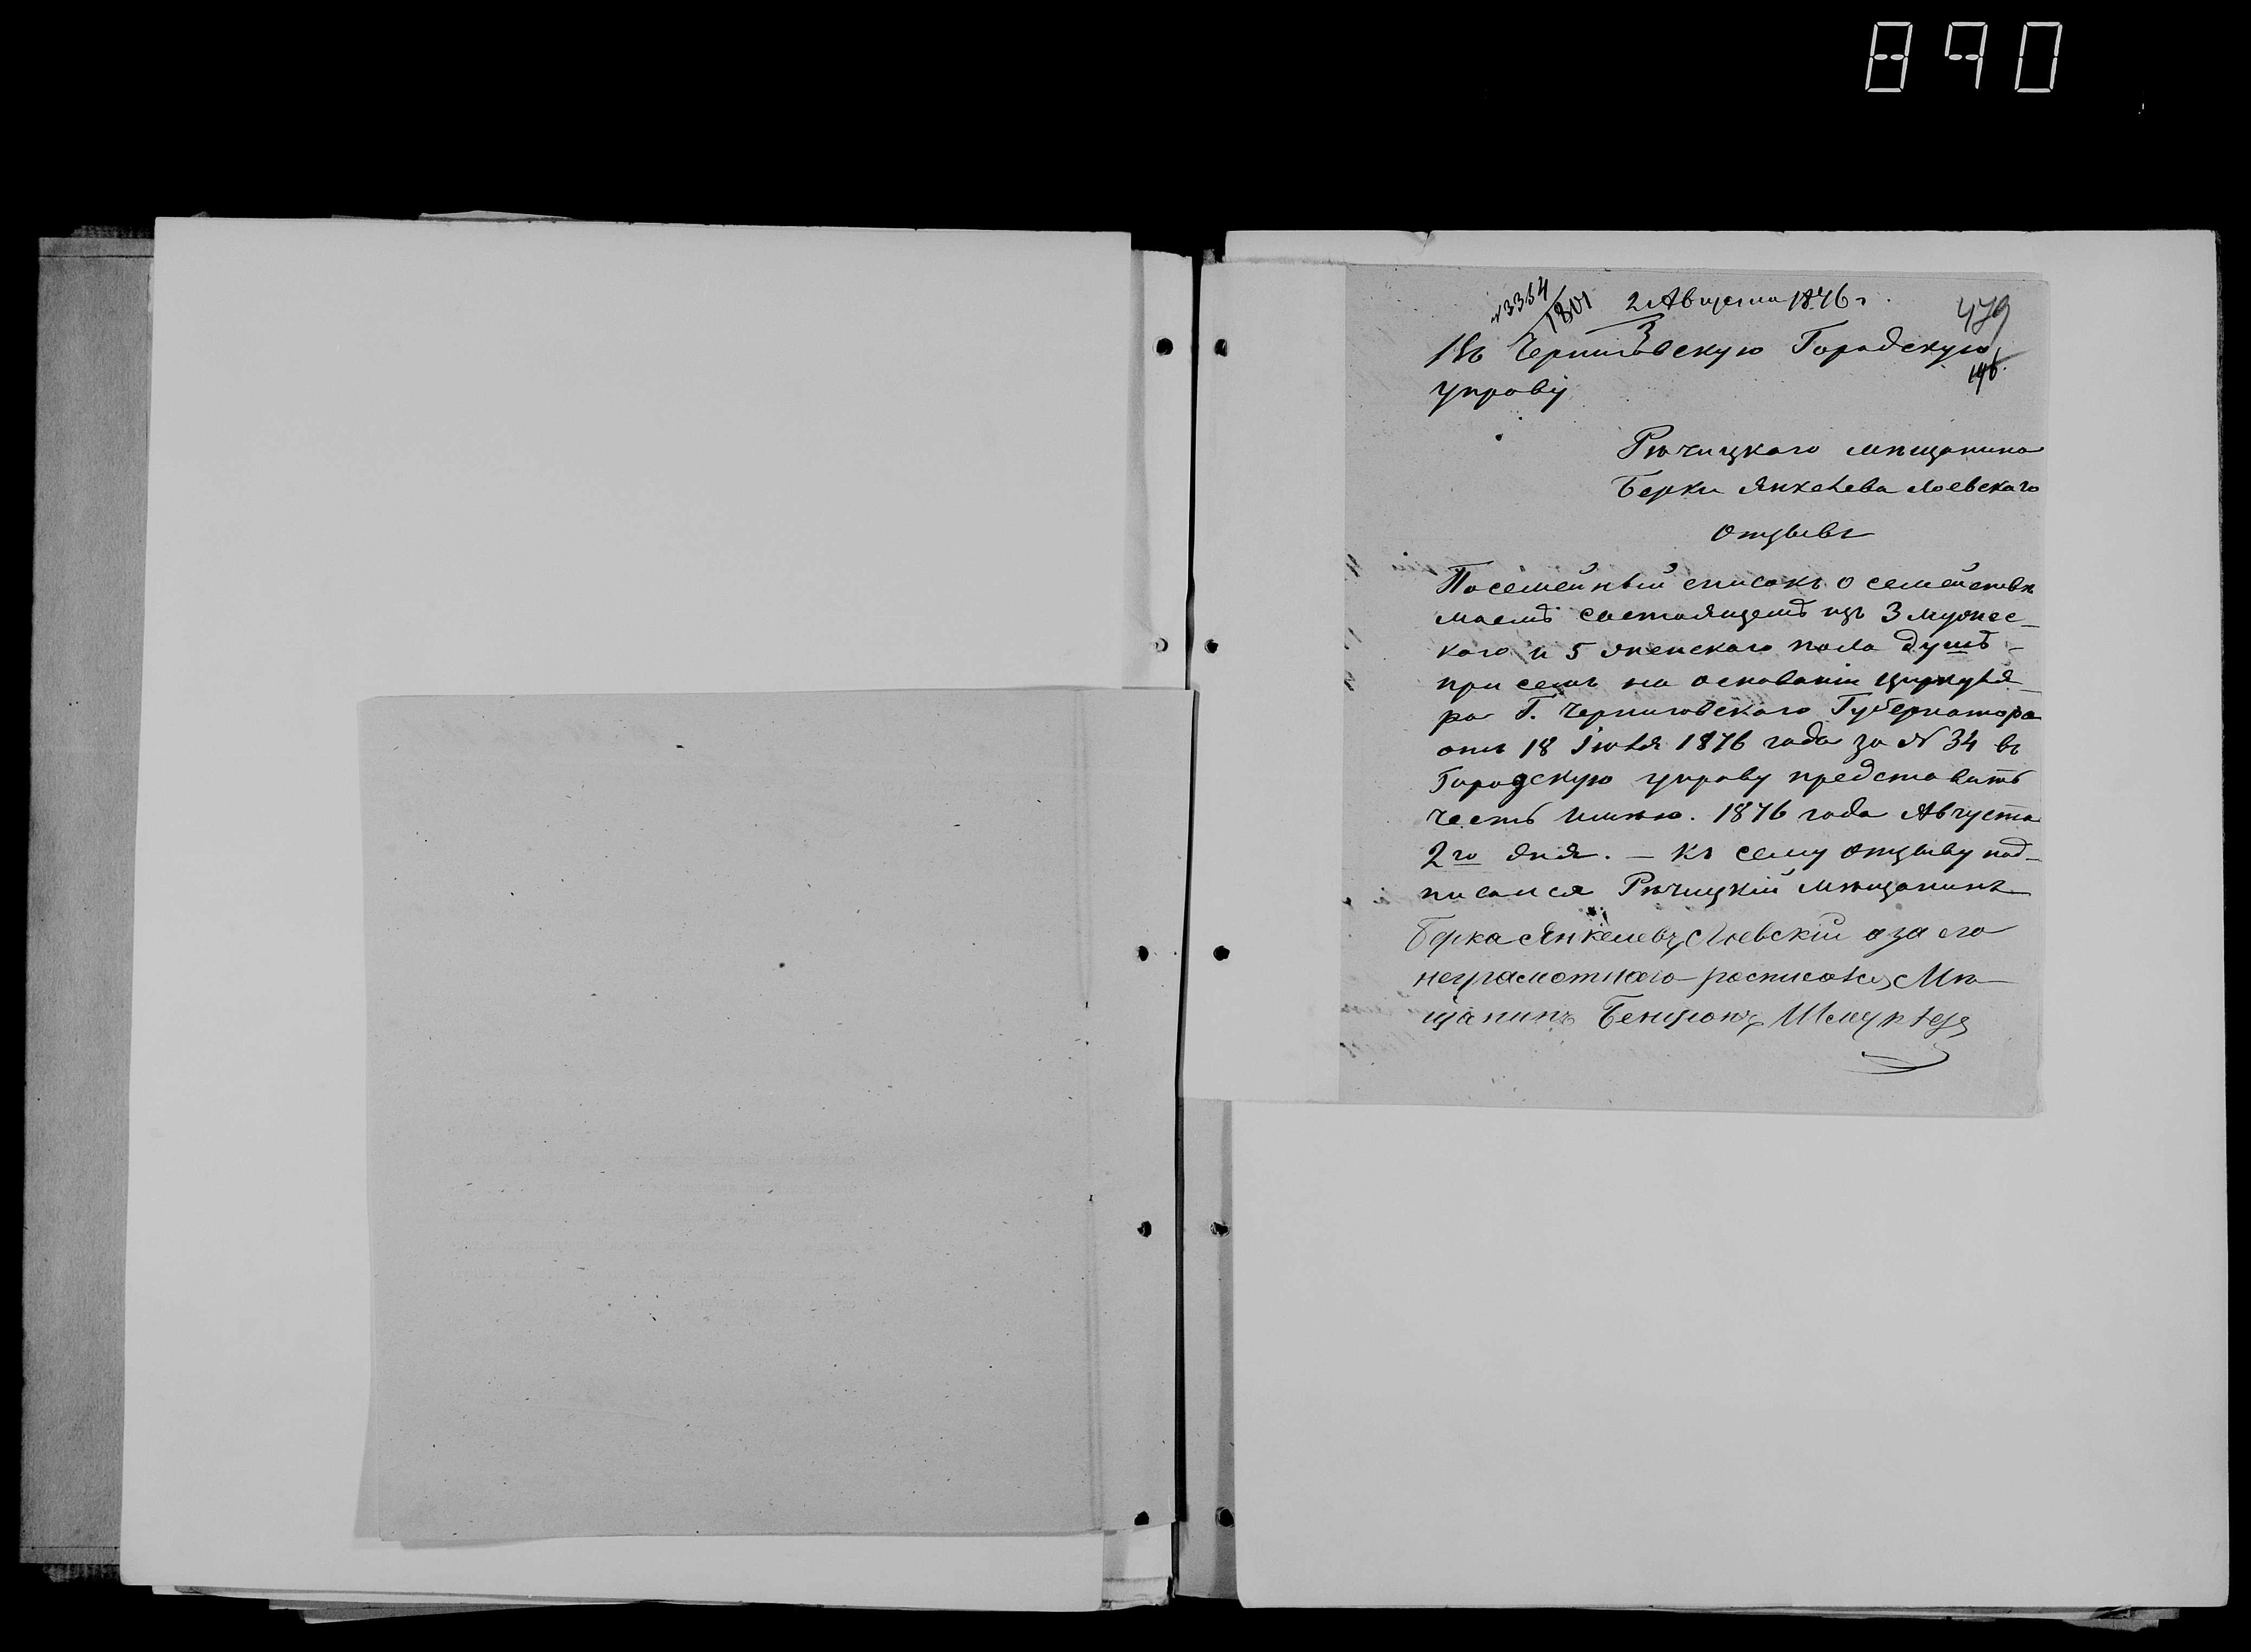 890
№ 3354
1801
2 Августа 1876 г.
3
479
196.
Въ Черниговскую Городскую
управу
Рѣчицкаго мѣщанина
Берки Янкелева Лоевскаго
Отзывъ
Посемейный списокъ о семействѣ
моемъ состоящемъ изъ 3 мужес-
каго и 5 женскаго пола душъ -
при семъ на основаніи циркуля-
ра Г. Черниговскаго Губернатора
отъ 18 Іюля 1876 года за № 34 въ
Городскую управу представить
честь имѣю. 1876 года Августа
2го дня. - Къ сему отзыву под-
писался Рѣчицкій мѣщанинъ
Берка Янкелевъ Лоевскій а за его
неграмотнаго росписался Мѣ-
щанинъ Бенціонъ